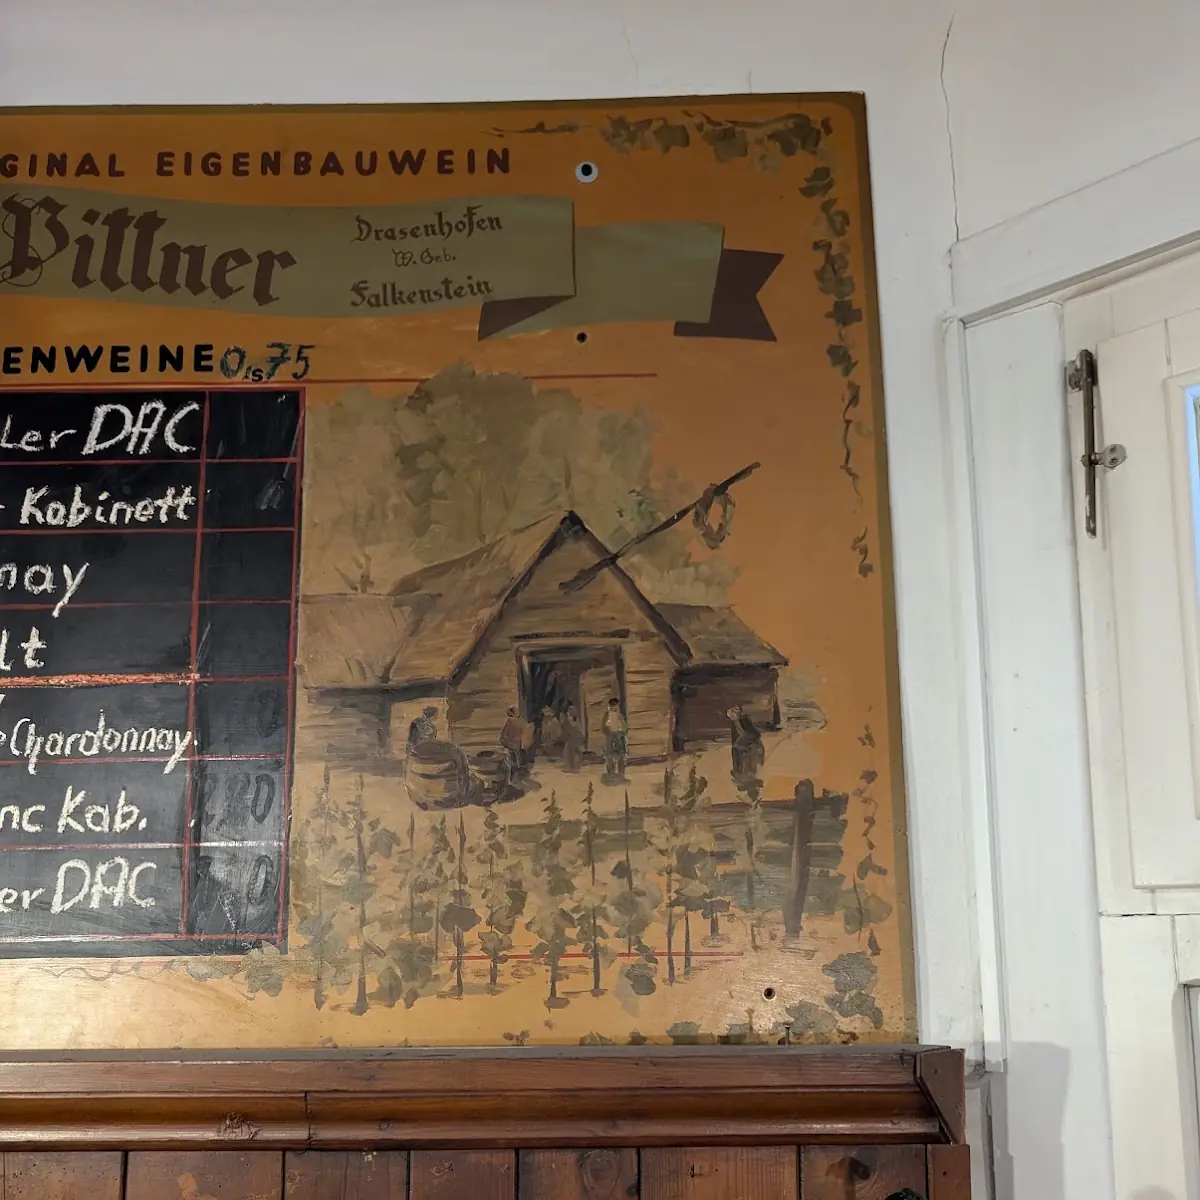 GINAL EIGENBAUWEIN
Pittner
Drasenhofen
W. Geb.
Falkenstein
ENWEINE 0,75
Ler DAC
Kabinett
nay
lt
Chardonnay.
nc Kab.
er DAC